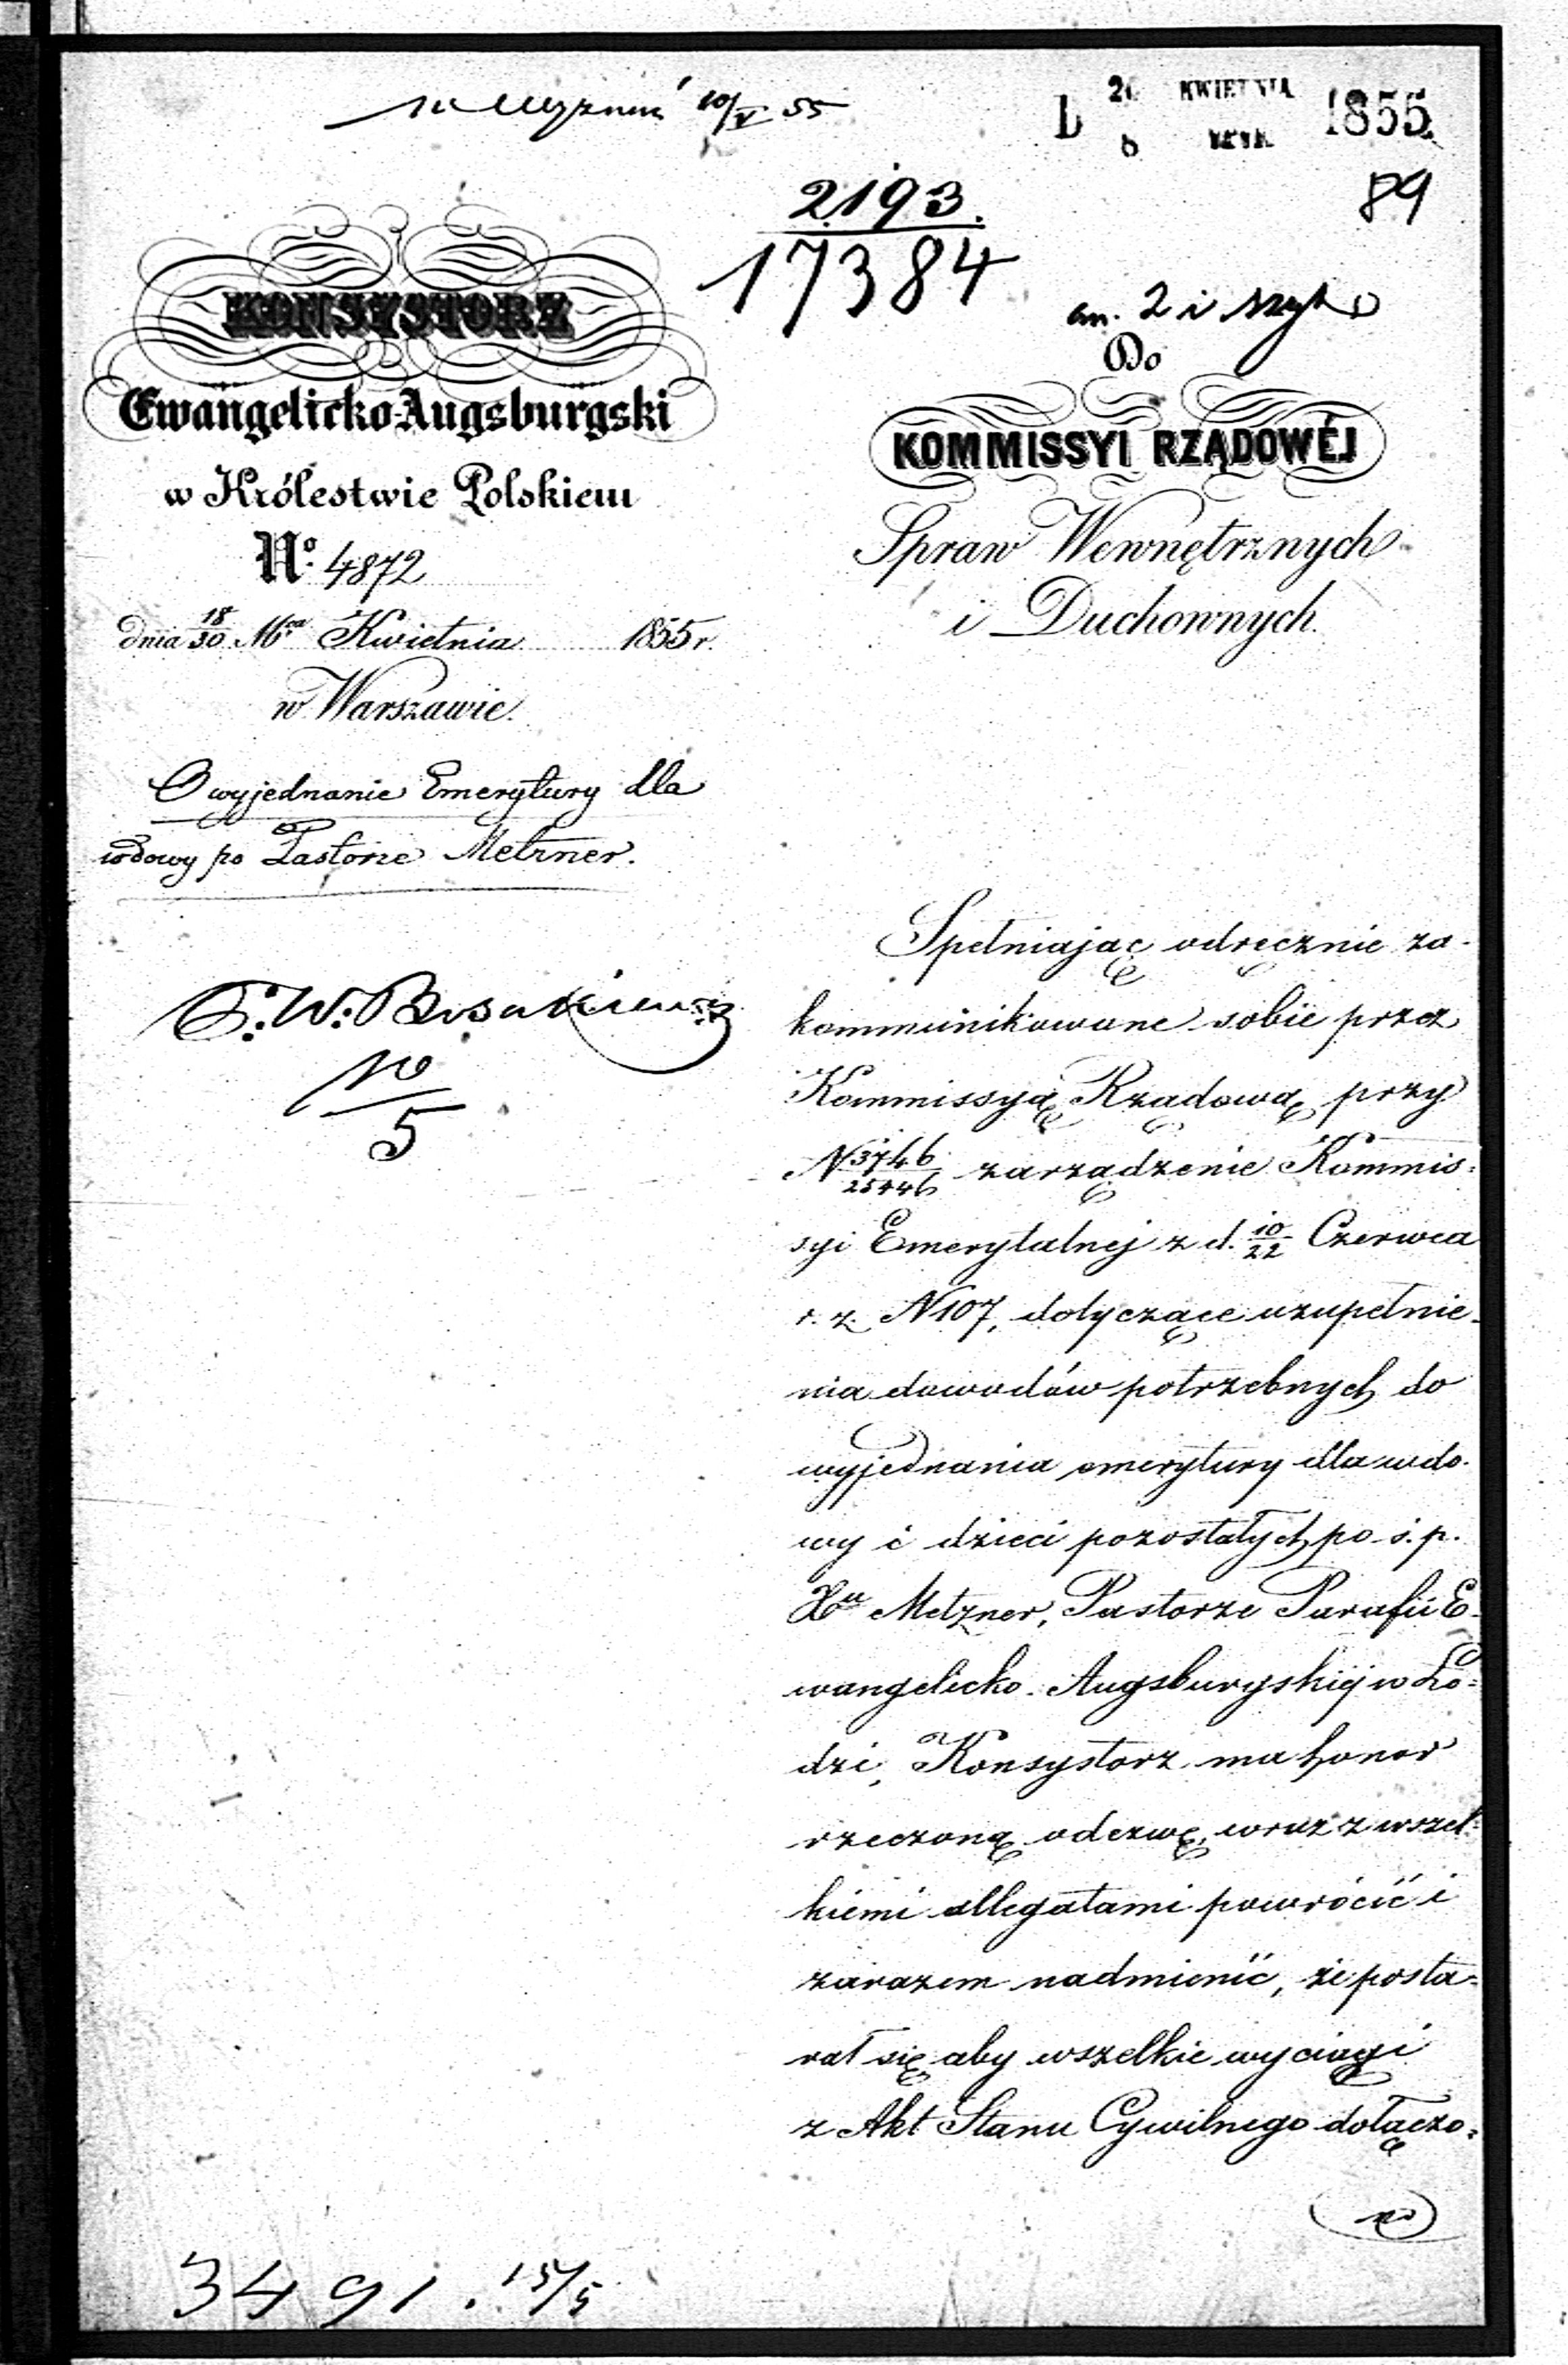 10/V 55
26 KWIETNIA 1855
8
89
2193.
17384
an. 2 i
KONSYSTORZ
Ewangelicko-Augsburgski
w Królestwie Polskiem
No. 4872
dnia 18/30 Mca Kwietnia 1855 r.
w Warszawie.
O wyjednanie Emerytury dla
wdowy po Pastorze Metzner.
10
5
Do
KOMMISSYI RZĄDOWÉJ
Spraw Wewnętrznych
i Duchownych.
Spełniając odręcznie za-
kommunikowane sobie przez
Kommissyą Rządową przy
N 3746/25446 zarządzenie Kommis-
syi Emerytalnej z d. 10/22 Czerwca
r. z. N 107, dotyczące uzupełnie-
nia dowodów potrzebnych do
wyjednania emerytury dla wdo-
wy i dzieci pozostałych po ś. p.
Xu Metzner, Pastorze Parafii E-
wangelicko-Augsburgskiéj w Ło-
dzi, Konsystorz ma honor
rzeczoną odezwę, wraz z wszel-
kiemi allegatami powrócić i
zarazem nadmienić, że posta-
rał się aby wszelkie wyciągi
z Akt Stanu Cywilnego dołączo-
no
3491. 15/5